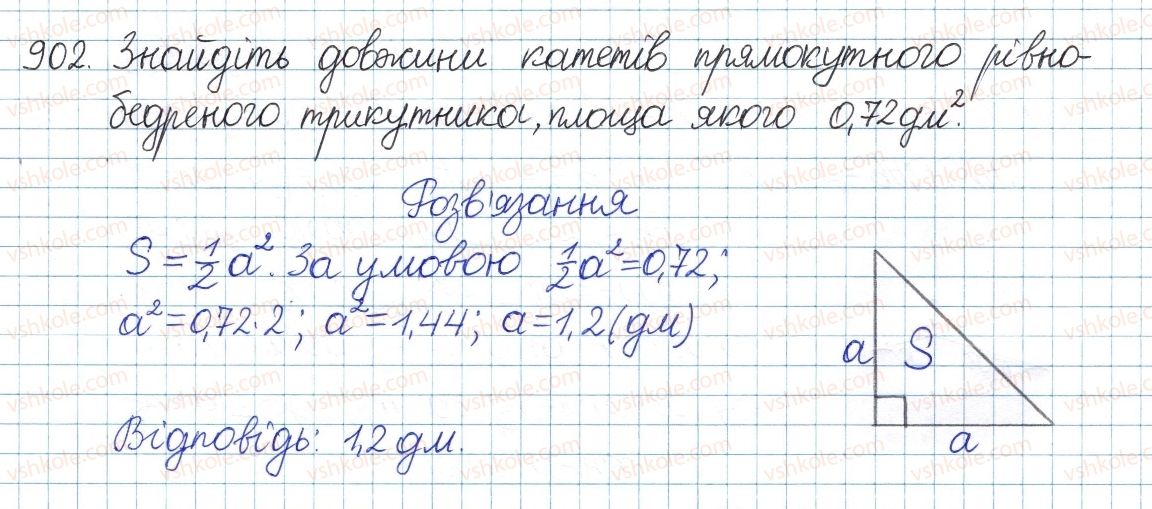 902. Знайдіть довжини катетів прямокутного рівно-
бедреного трикутника, площа якого 0,72 дм².
Розв'язання
S = 1/2 a². За умовою 1/2 a² = 0,72;
a² = 0,72 · 2; a² = 1,44; a = 1,2 (дм)
a S
a
Відповідь: 1,2 дм.
vshkole.com